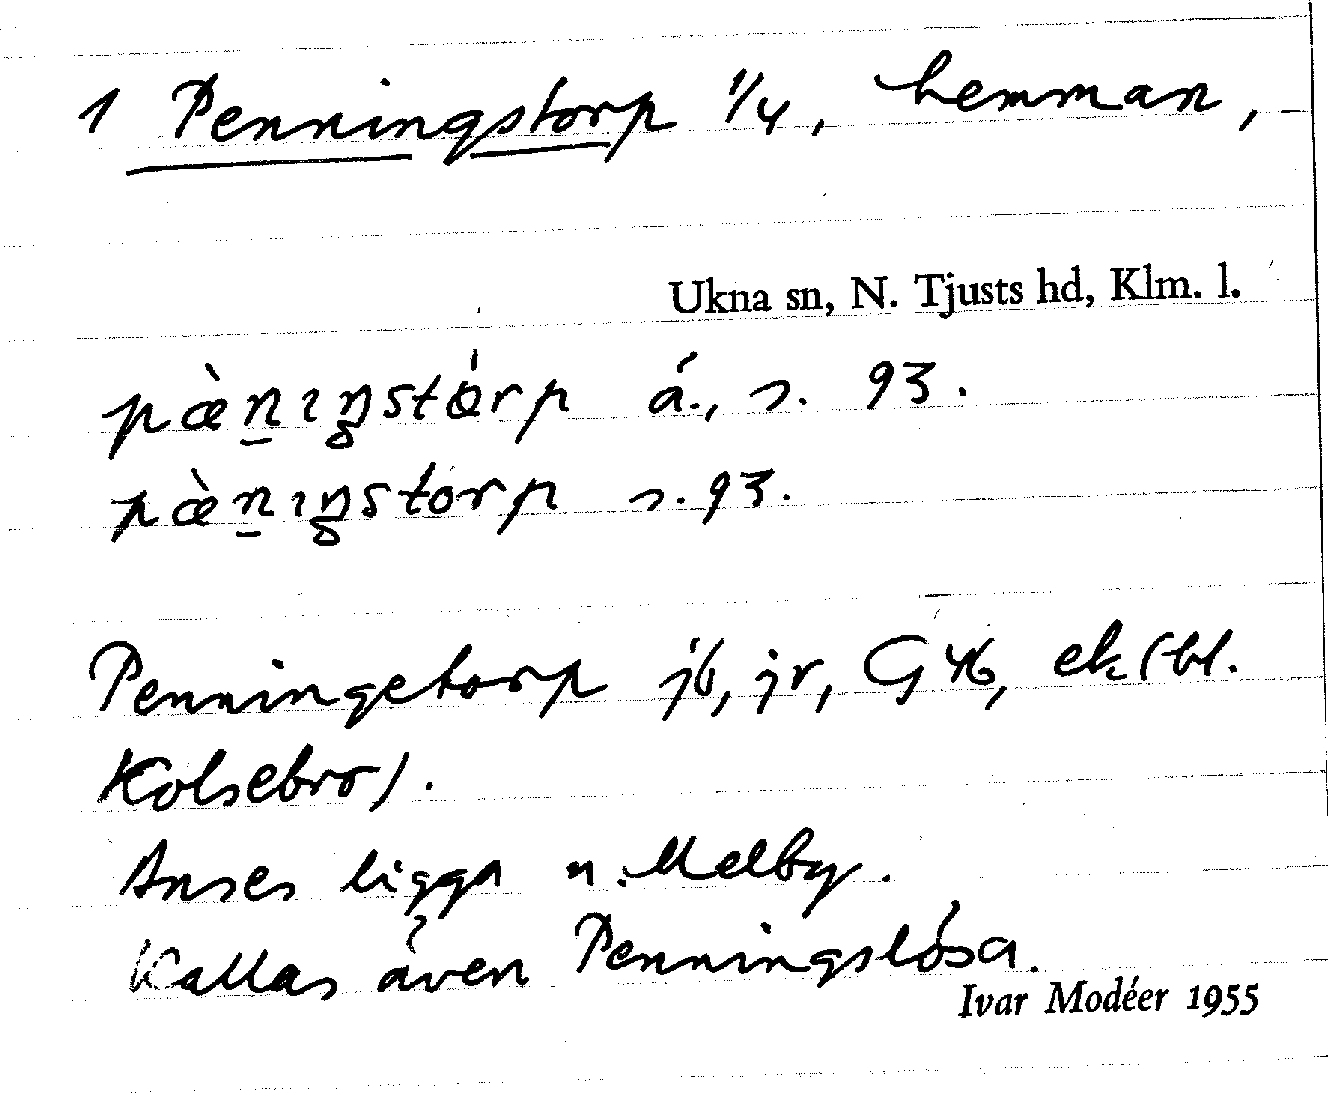 1 Penningstorp 1/4, hemman,
Ukna sn, N. Tjusts hd, Klm. l.
pæ̀n̠ıŋstȯ́rp á., s. 93.
pæ̀n̠ıŋstorp s. 93.
Penningetorp jb, jr, G 46, ek (bl.
Kolsebro).
Anses ligga u. Melby.
Kallas även Penningslösa.
Ivar Modéer 1955